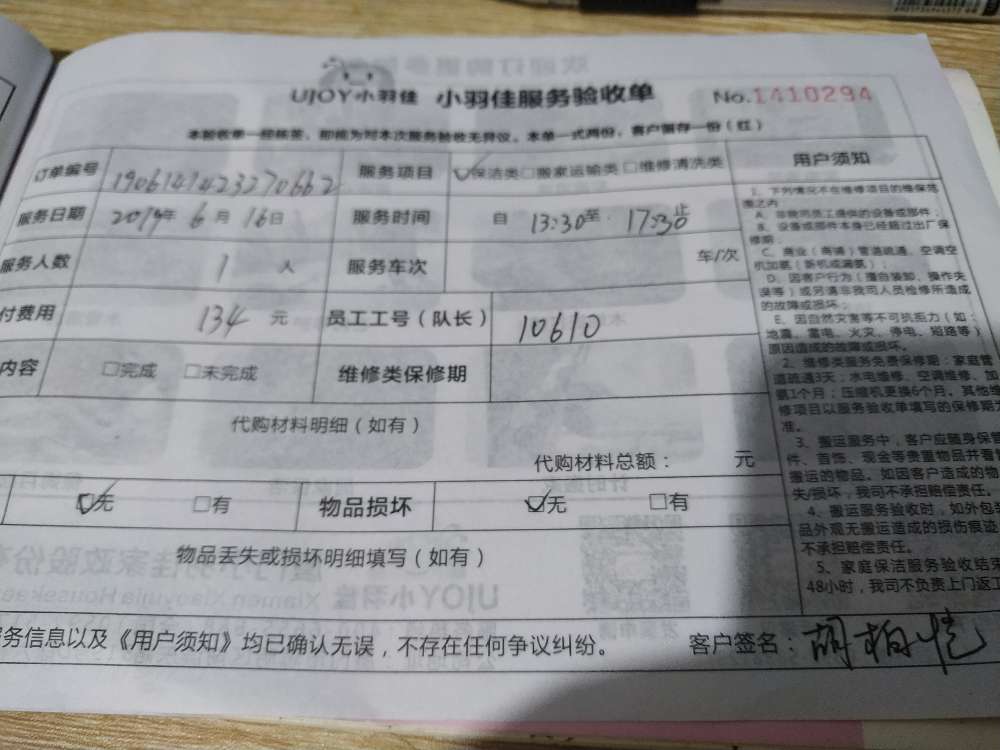 UJOY小羽佳 小羽佳服务验收单 No.1410294
本验收单一经核签，即视为对本次服务验收无异议。本单一式两份，客户留存一份（红）
订单编号 1906141423270662 服务项目 保洁类 □搬家运输类 □维修清洗类 用户须知
服务日期 2019年 6月 16日 服务时间 自 13:30至 17:30止
服务人数 1 人 服务车次 车/次
付费用 134 元 员工工号（队长） 10610
内容 □完成 □未完成 维修类保修期
代购材料明细（如有）
代购材料总额： 元
无 □有 物品损坏 无 □有
物品丢失或损坏明细填写（如有）
务信息以及《用户须知》均已确认无误，不存在任何争议纠纷。 客户签名：胡柏恺
1、下列情况不在维修项目的维保范
围之内：
A、非我司员工提供的设备或部件；
B、设备或部件本身已经超过出厂保
修期；
C、商业（商铺）管道疏通、空调空
机加氨（新机或漏氨）；
D、因客户行为（擅自装卸、操作失
误等）或另请非我司人员检修所造成
的故障或损坏；
E、因自然灾害等不可抗拒力（如：
地震、雷电、火灾、停电、短路等）
原因造成的故障或损坏。
2、维修类服务免费保修期：家庭管
道疏通3天；水电维修、空调维修、加
氨1个月；压缩机更换6个月。其他维
修项目以服务验收单填写的保修期为
准。
3、搬运服务中，客户应随身保管
件、首饰、现金等贵重物品并看管
搬运的物品。如因客户造成的物
失/损坏，我司不承担赔偿责任。
4、搬运服务验收时，如外包装
品外观无搬运造成的损伤痕迹
不承担赔偿责任。
5、家庭保洁服务验收结束
48小时，我司不负责上门返工